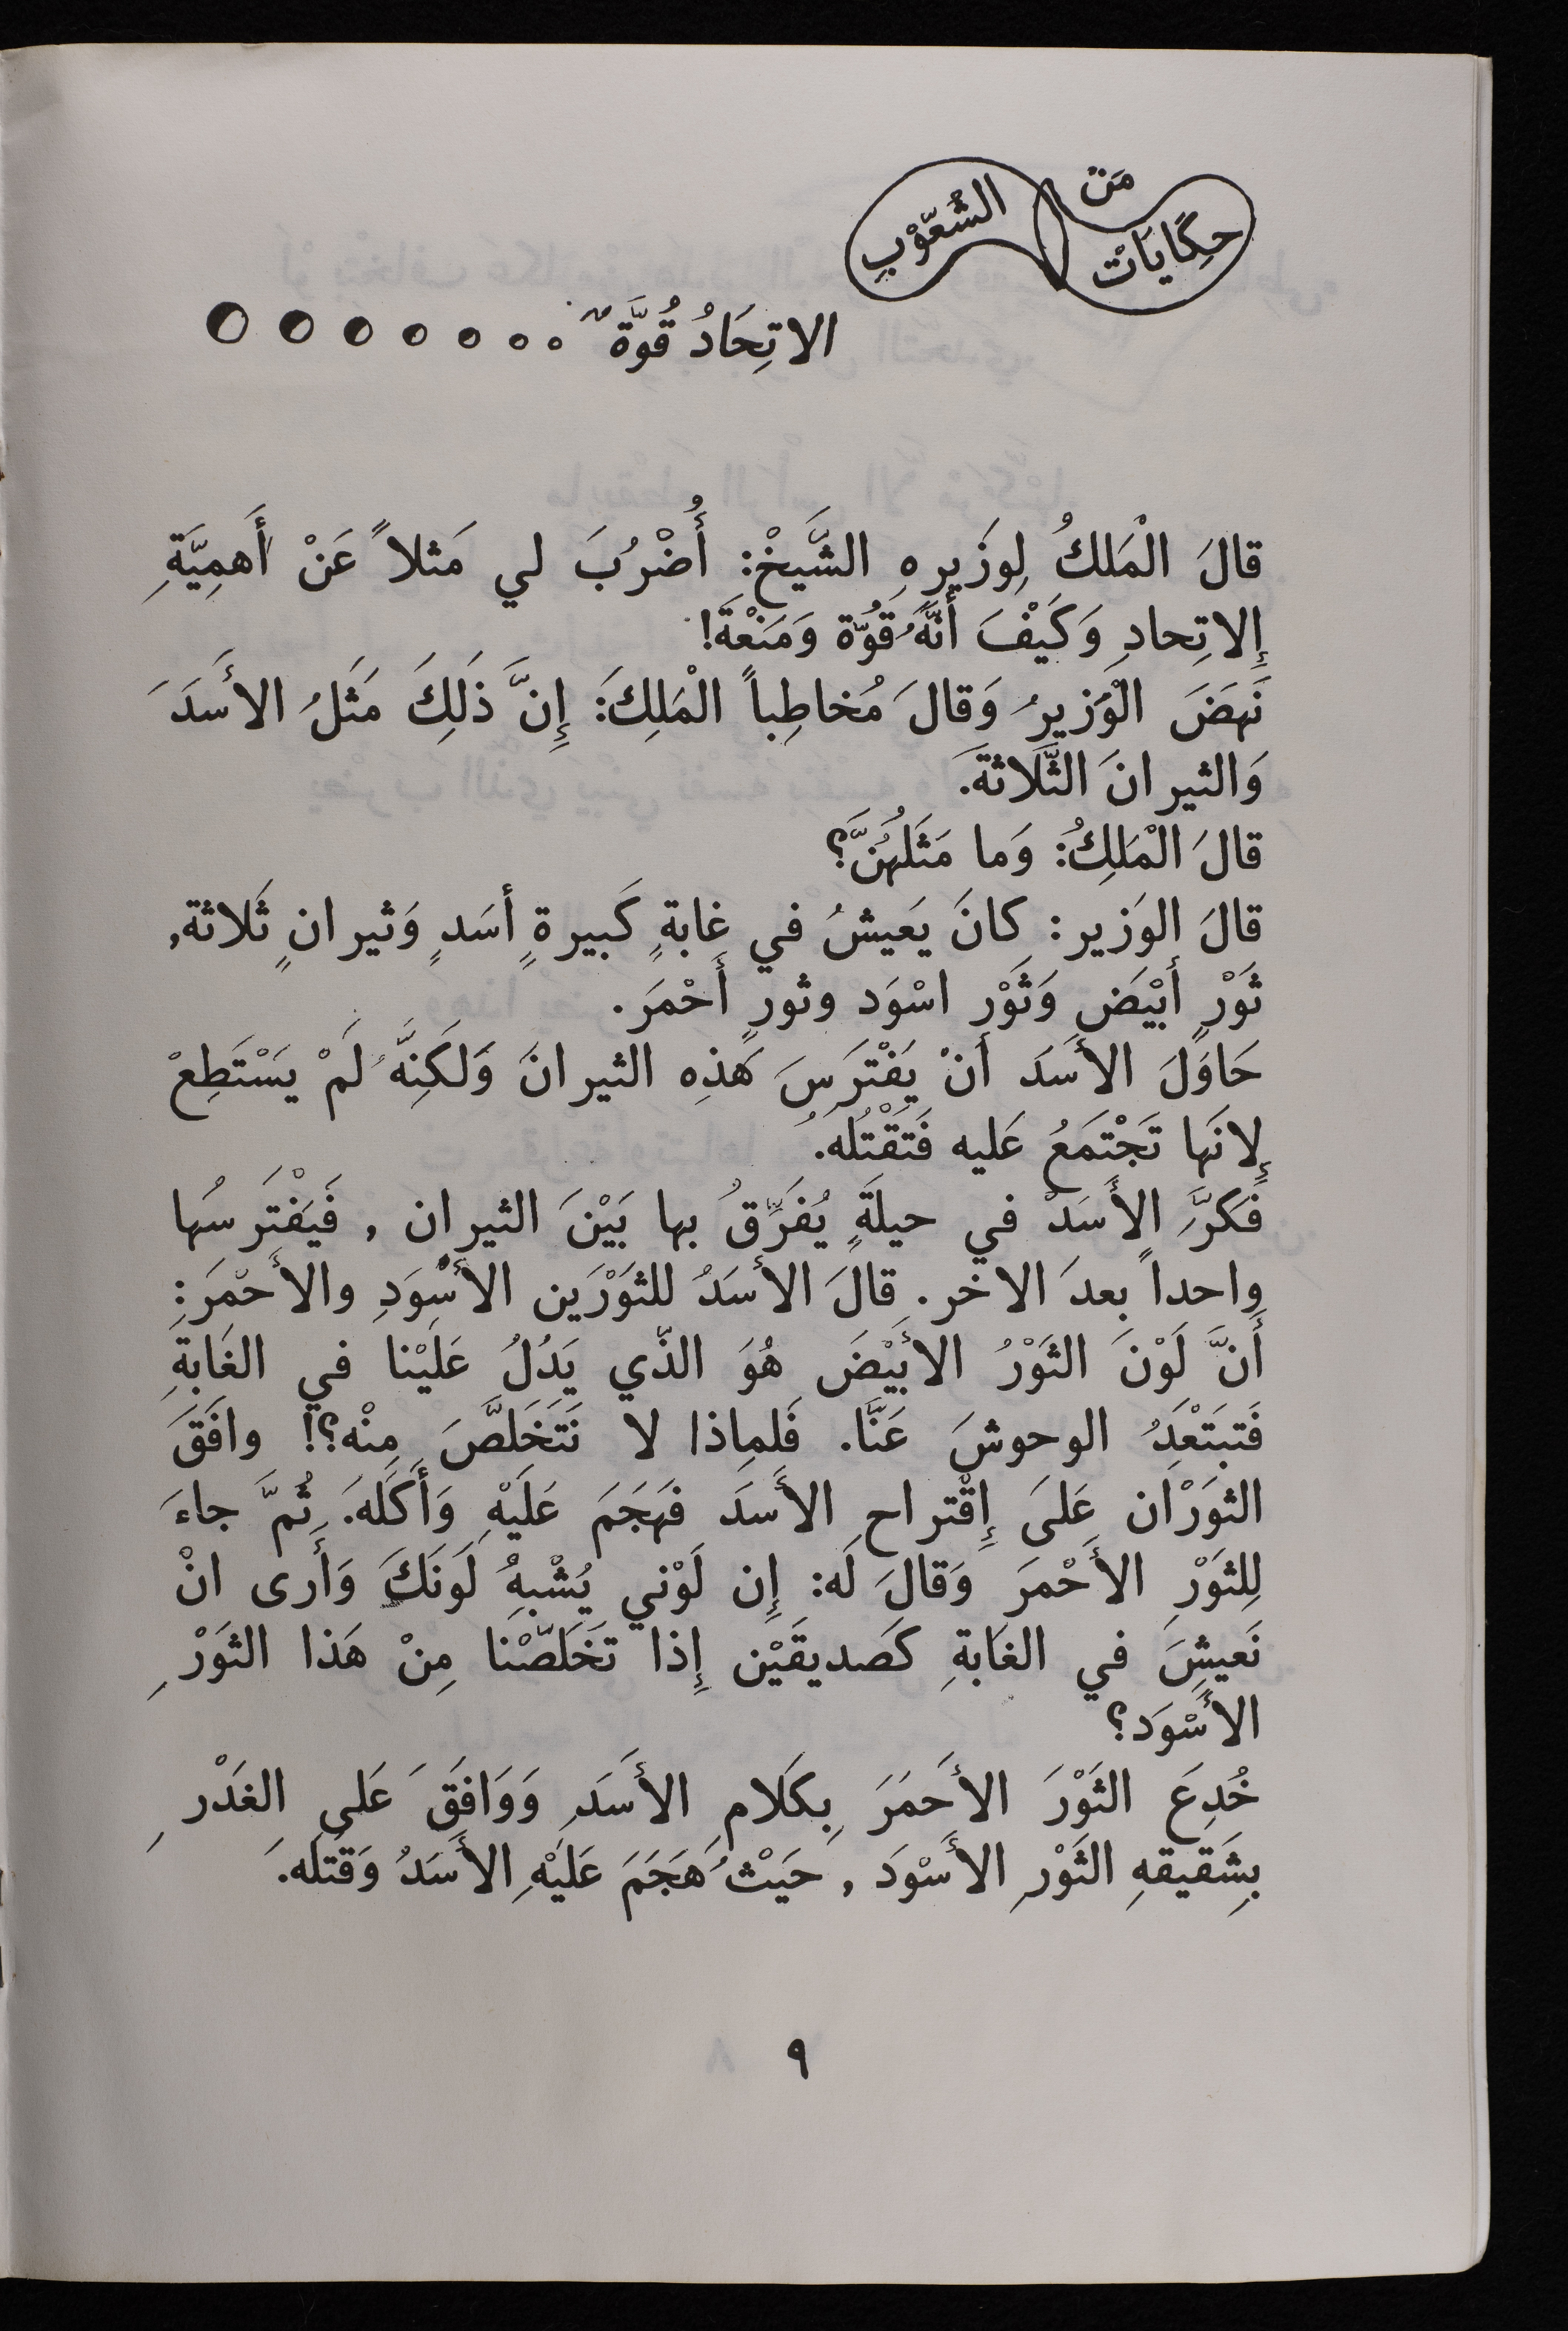 حِكَايَاتْ مَنْ الشُعّوْبِ
الاتِحَادُ قُوَّة
قالَ الْمَلكُ لِوَزَيرِهِ الشَّيخْ: أُضْرُبَ لي مَثلاً عَنْ أَهمِيَّةِ
إِلاتِحادِ وَكَيْفَ أَنَّهُ قُوّة وَمَنْعةَ!
نَهَضَ الْوَزيرُ وَقالَ مُخاطِباً الْمَلِكَ: إِنَّ ذَلِكَ مَثَلُ الأَسَدَ
وَالثيرانَ الثَّلاثةَ.
قالَ الْمَلِكُ: وَما مَثَلُهُنَّ؟
قالَ الوَزير: كانَ يَعيشُ في غابةٍ كَبيرةٍ أسَدٍ وَثيرانٍ ثَلاثة,
ثَوْرٍ أَبْيَضِ وَثَوْرِ اسْوَد وثورٍ أَحْمَرَ.
حَاوَلَ الأَسَدَ أَنْ يَفْتَرَسَ هَذِه الثيرانَ وَلَكَنِّهُ لَمْ يَسْتَطِعْ
لِإنَها تَجْتمَعُ عَليه فَتَقْتُلَهُ.
فَكرَّ الأَسَدْ في حيلَةٍ يُفَرِّقُ بها بَيْنَ الثيران , فَيَفْتَرسُها
واحداً بعدَ الاخر. قالَ الأسَدُ للثوَرْيَن الأَسْوَدِ والأَحْمَرَ:
أَنَّ لَوْنَ الثَوْرُ الأَبْيَضَ هُوَ الذّي يَدُلُ عَلَيْنا في الغَابةِ
فَتبَتْعَدِ الوحوشَ عَنّا. فَلماِذا لا نَتَخَلصََّ مِنْه؟! وافَقَ
الثوَرْان عَلىَ إِقْتراحِ الأَسدَ فهَجَمَ عَلَيْهِ وَأَكَلهَ. ثُمَّ جاءَ
لِلثوَرْ الأَحْمرَ وَقالَ لَه: إِن لَوْني يُشْبهِ لَونَكَ وَأَرى انْ
نَعيشَ في الغَابةِ كَصديقَيْن إِذا تخَلَصّْنا مِنْ هَذا الثوَرْ
الأَسْوَد؟
خُدِعَ الثَوْرَ الأَحَمَرَ بِكَلام الأَسَدِ وَوَافَقَ عَلى الغَدْر
بِشَقيقهِ الثَوْرِ الأَسْوَدَ , حَيَثْ هَجَمَ عَلَيْهِ الأَسَدُ وَقَتلَه.
٩